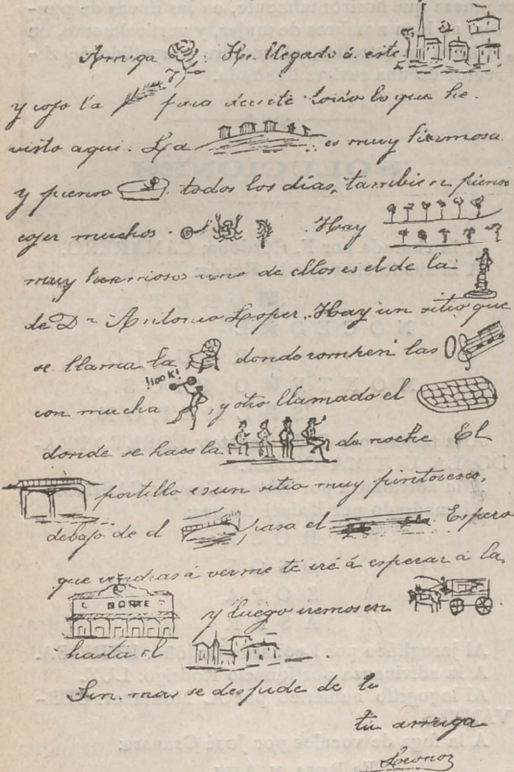 Amiga : He llegado á este
y cojo la para decirte todo lo que he
visto aqui. La es muy hermosa
y pienso todos los dias, tambien pienso
cojer muchos Hay
muy hermosos uno de ellos es el de la
de Dn Antonio Loper. Hay un sitio que
se llama la donde rompen las
¡100 K!
con mucha , y otro llamado el
donde se hace la de noche El
portillo es un sitio muy pintoresco,
debajo de el pasa el Espero
que vendras á verme te iré á esperar á la
NORTE
y luego iremos en
hasta el
Sin mas se despide de te
tu amiga
Leonor